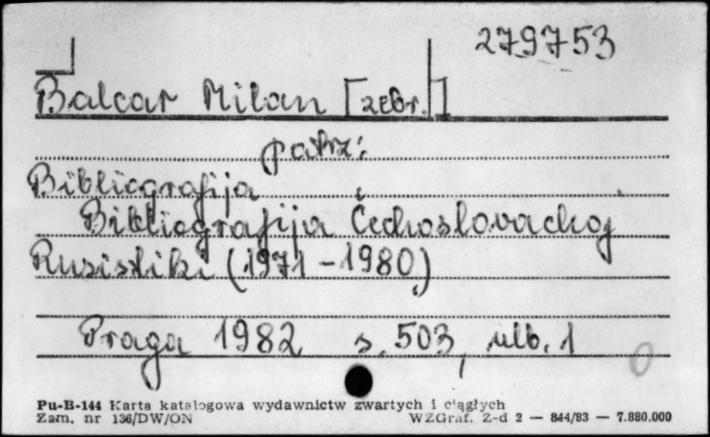 279753
Balcar Milan [zebr.]
patrz:
Bibliografija
Bibliografija Čechoslovackoj
Rusistiki (1971-1980)
Praga 1982 s. 503, ulb. 1
0
Pu-B-144 Karta katalogowa wydawnictw zwartych i ciągłych
Zam. nr 136/DW/ON WZGraf. Z-d 2 — 844/83 — 7.880.000